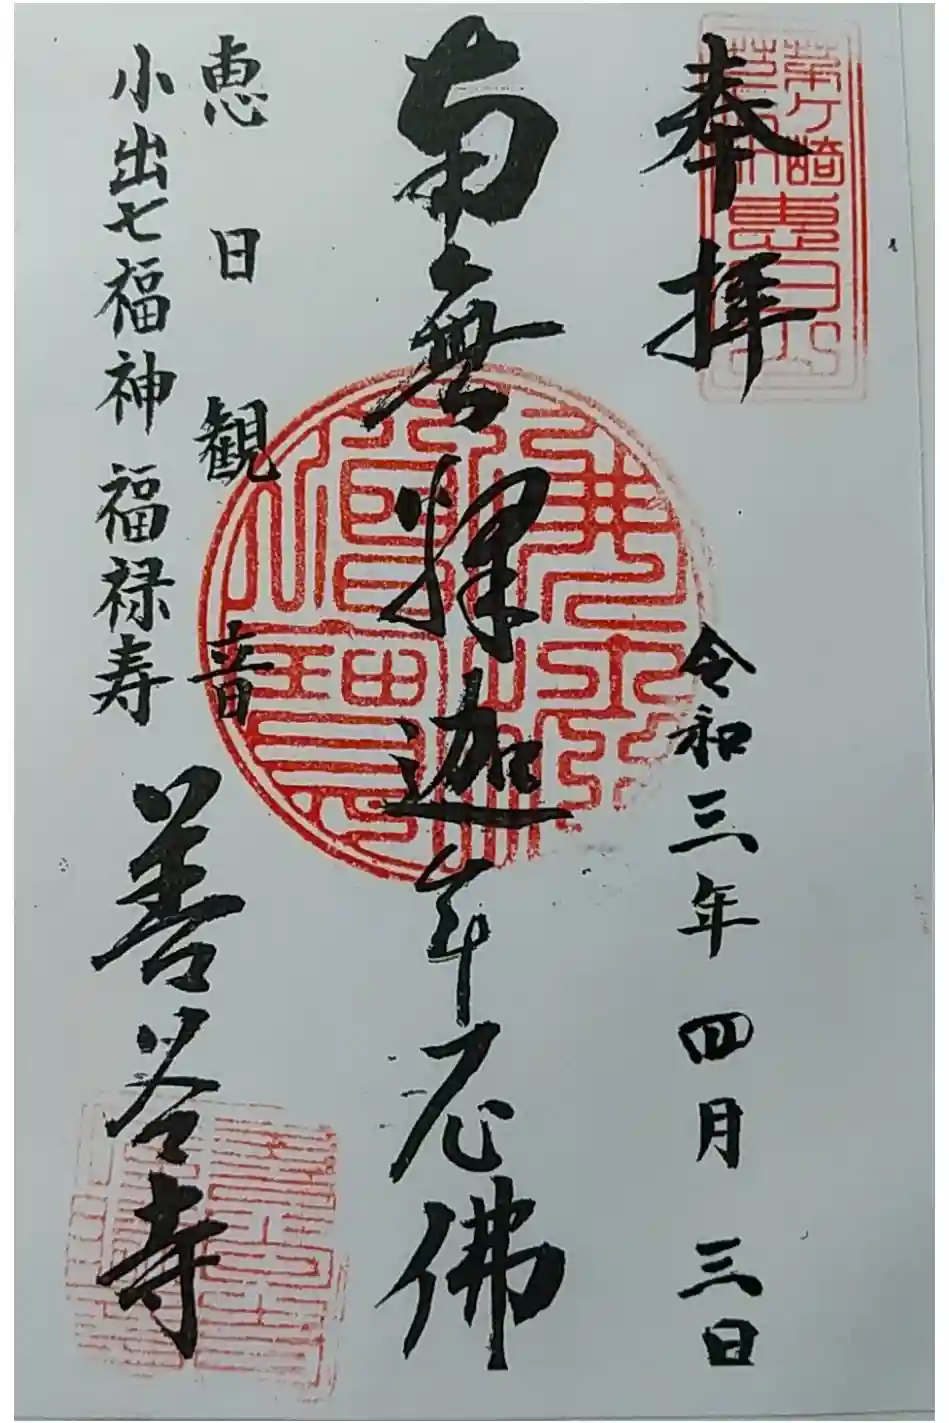 奉拝
茅ヶ崎
令和三年四月三日
南無釋迦牟尼佛
佛法僧寶
恵日観音
小出七福神 福禄寿
善谷寺